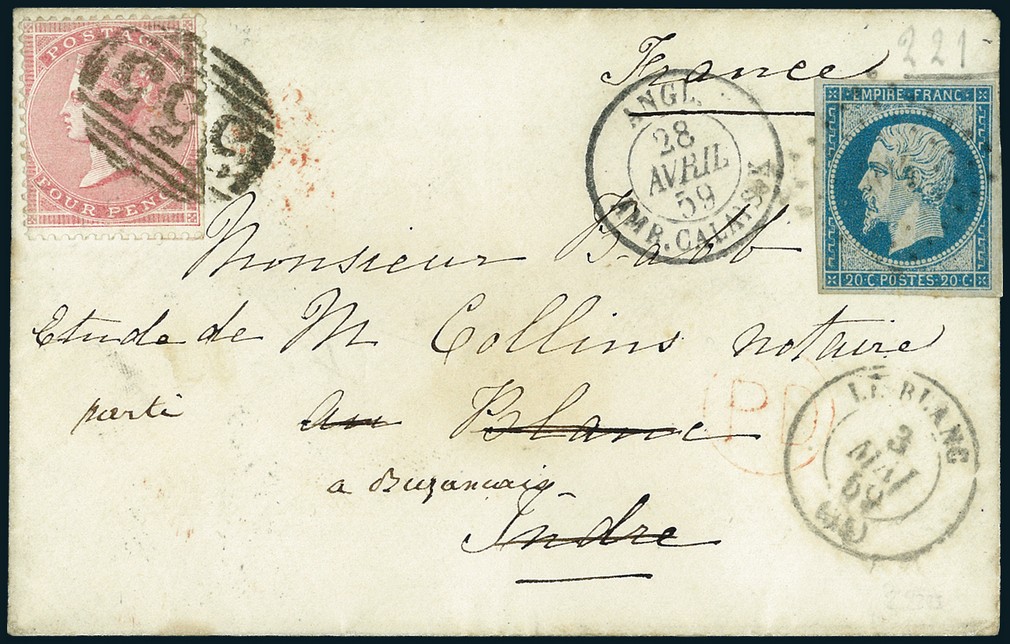 POSTAGE
FOUR PENC
France
221
ANGL.
28
AVRIL
59
AMB. CALAIS
EMPIRE FRANC
20·C·POSTES·20·C
Monsieur Babb
Etude de M Collins notaire
parti au Blanc
a Buzancais
Indre
PD
LE BLANC
3
MAI
59